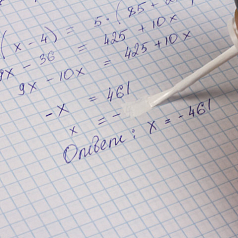 (x-4) = 5·(85+2
9x-36 = 425+10x
9x-10x = 425+10x
-x = 461
x = -
Ответ: x = -461